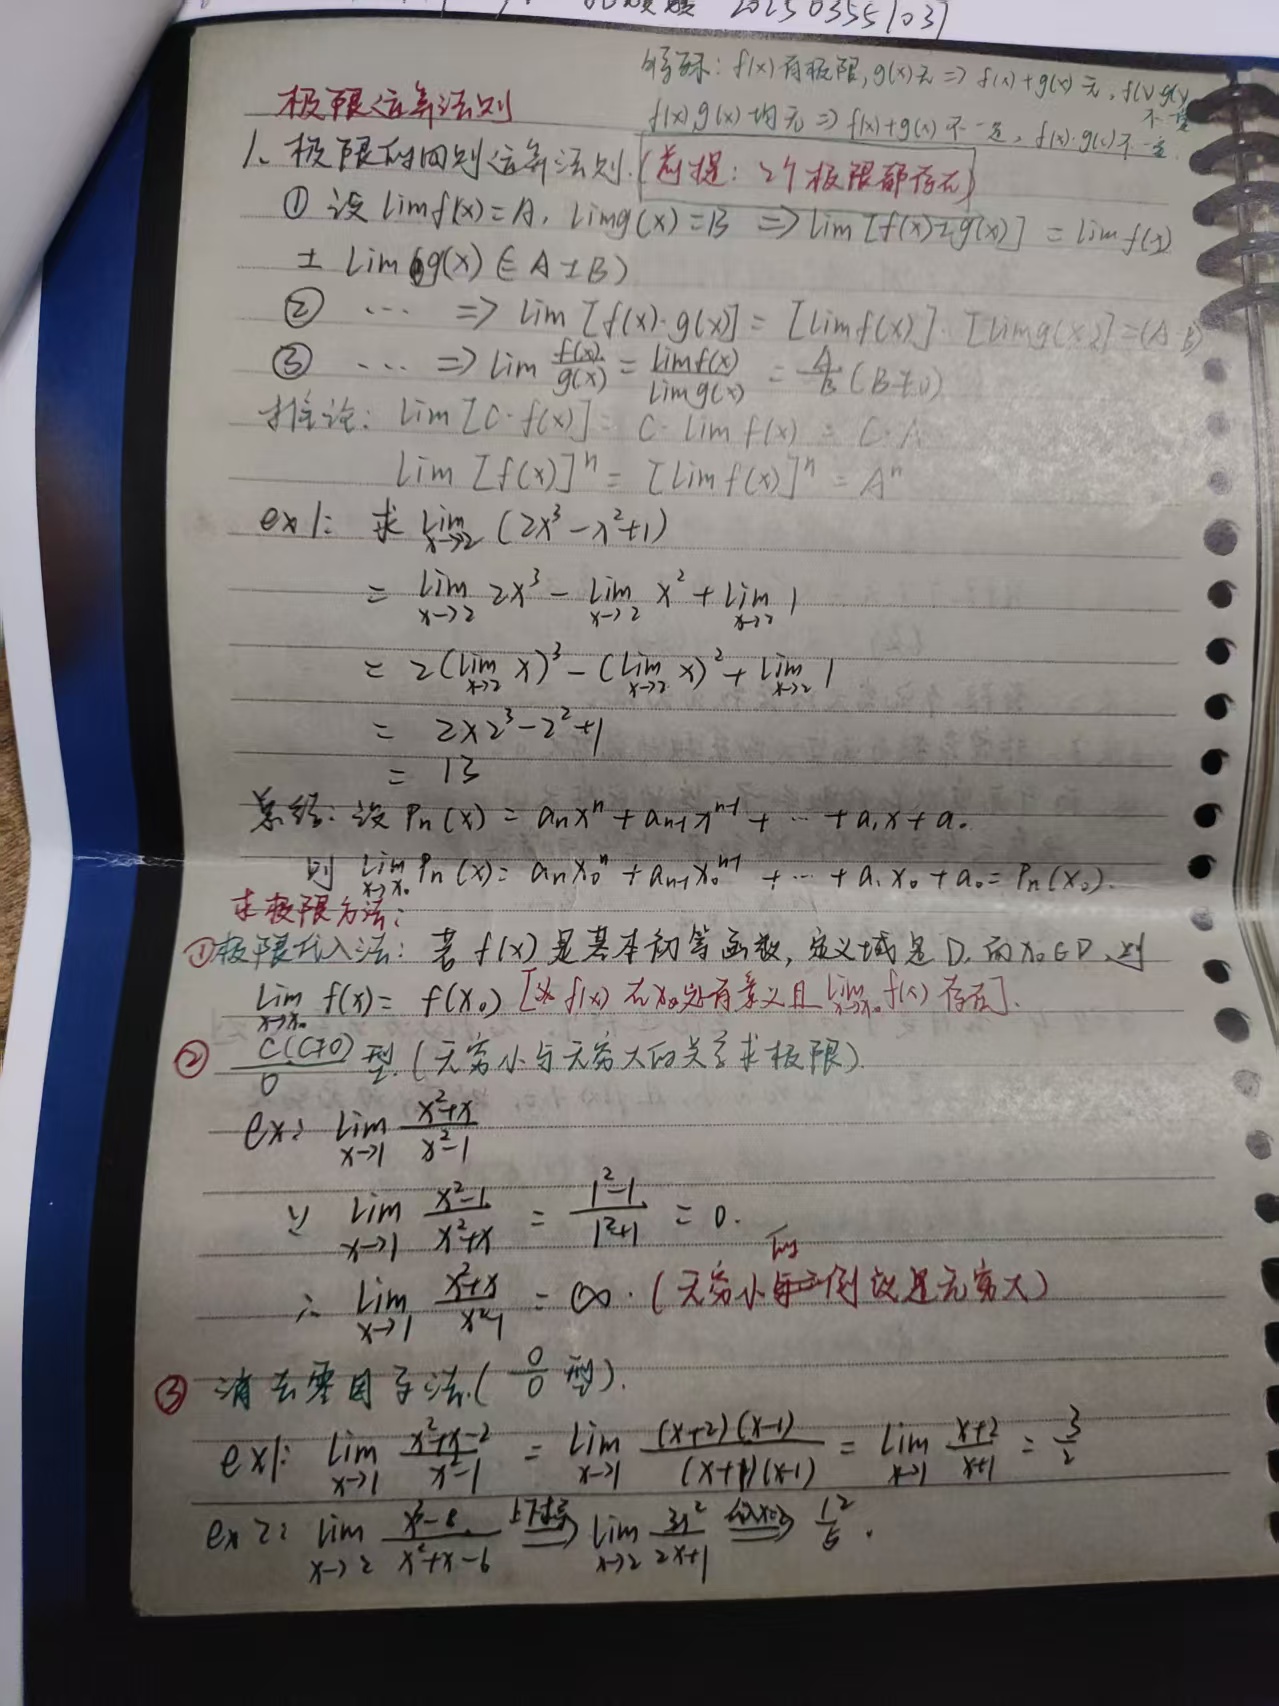 202503551031
特殊: f(x)有极限, g(x)无 => f(x)+g(x) 无, f(x)g(x)不一定
f(x) g(x) 均无 => f(x)+g(x) 不一定, f(x)·g(x)不一定.
极限运算法则
1、极限的四则运算法则.(前提: 2个极限都存在)
① 设 limf(x)=A, limg(x)=B => lim[f(x)±g(x)] = lim f(x)
± lim g(x) (= A±B)
② ... => lim [f(x)·g(x)] = [limf(x)]·[limg(x)]=(A·B)
③ ... => lim f(x)/g(x) = limf(x)/limg(x) = A/B (B≠0)
推论: lim [C·f(x)] = C·lim f(x) = C·A
lim [f(x)]^n = [limf(x)]^n = A^n
ex1: 求 lim x→2 (2x³-x²+1)
= lim x→2 2x³ - lim x→2 x² + lim x→2 1
= 2(lim x→2 x)³ - (lim x→2 x)² + lim x→2 1
= 2×2³-2²+1
= 13
总结: 设 Pn(x) = anx^n + an-1x^n-1 + ... + a1x + a0
则 lim x→x0 Pn(x) = anx0^n + an-1x0^n-1 + ... + a1x0 + a0 = Pn(x0).
求极限方法:
①极限代入法: 若 f(x) 是基本初等函数, 定义域是 D, 而 x0∈D, 则
lim x→x0 f(x) = f(x0) [f(x) 在 x0处有意义且 lim x→x0 f(x) 存在].
② C(C≠0)/0 型.(无穷小与无穷大的关系求极限).
ex: lim x→1 x²+x/x²-1
∵ lim x→1 x²-1/x²+x = 1²-1/1²+1 = 0.
∴ lim x→1 x²+x/x²-1 = ∞. (无穷小的倒数是无穷大)
③ 消去零因子法.( 0/0 型).
ex1: lim x→1 x²+x-2/x²-1 = lim x→1 (x+2)(x-1)/(x+1)(x-1) = lim x→1 x+2/x+1 = 3/2
ex2: lim x→2 x³-8/x²+x-6 上下求导 => lim x→2 3x²/2x+1 代入x=2 => 12/5.